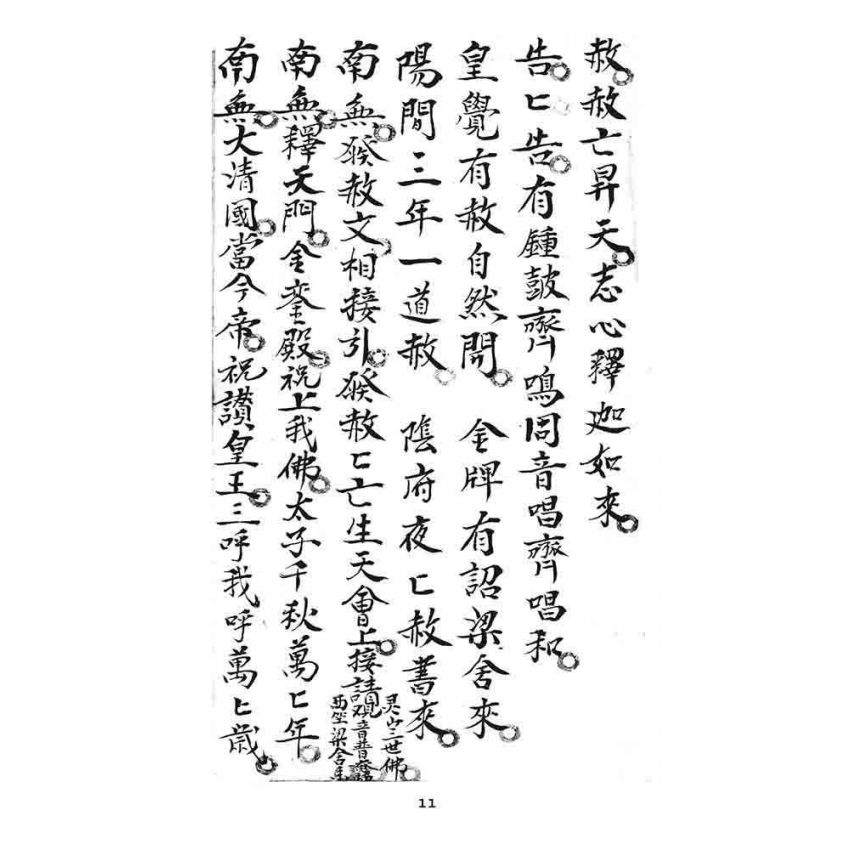 赦赦亡昇天志心釋迦如來
告匕告有鍾鼓齊鳴同音唱齊唱和
皇覺有赦自然開 金牌有詔梁舍來
陽間三年一道赦 陰府夜匕赦書來
南無發赦文相接引發赦匕亡生天會上接請觀音普
灵山三世佛
西坐梁舍
南無釋天門金鑾殿祝上我佛太子千秋萬匕年
南無大清國當今帝祝讃皇王三呼我呼萬匕歲
11